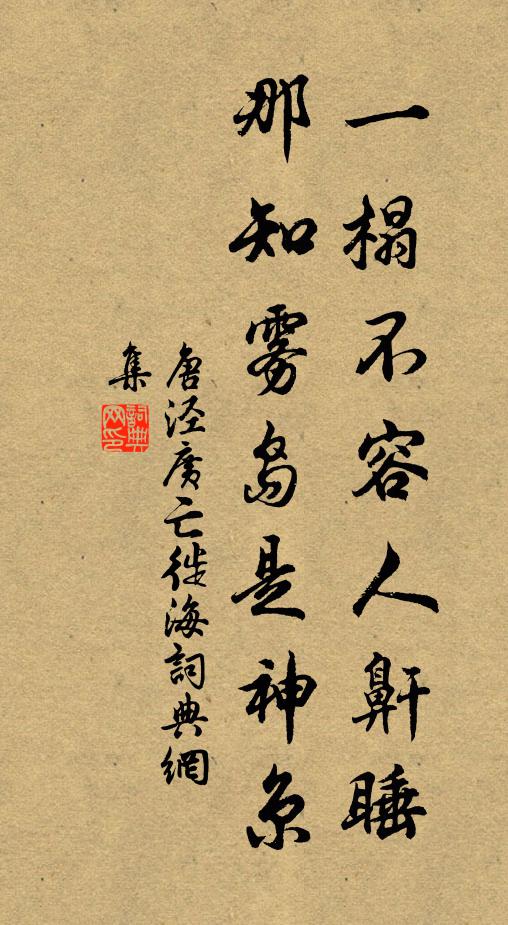 一榻不容人鼾睡
那知雾岛是神京
唐泾廣亡徙海詞典網
集
詞典网印